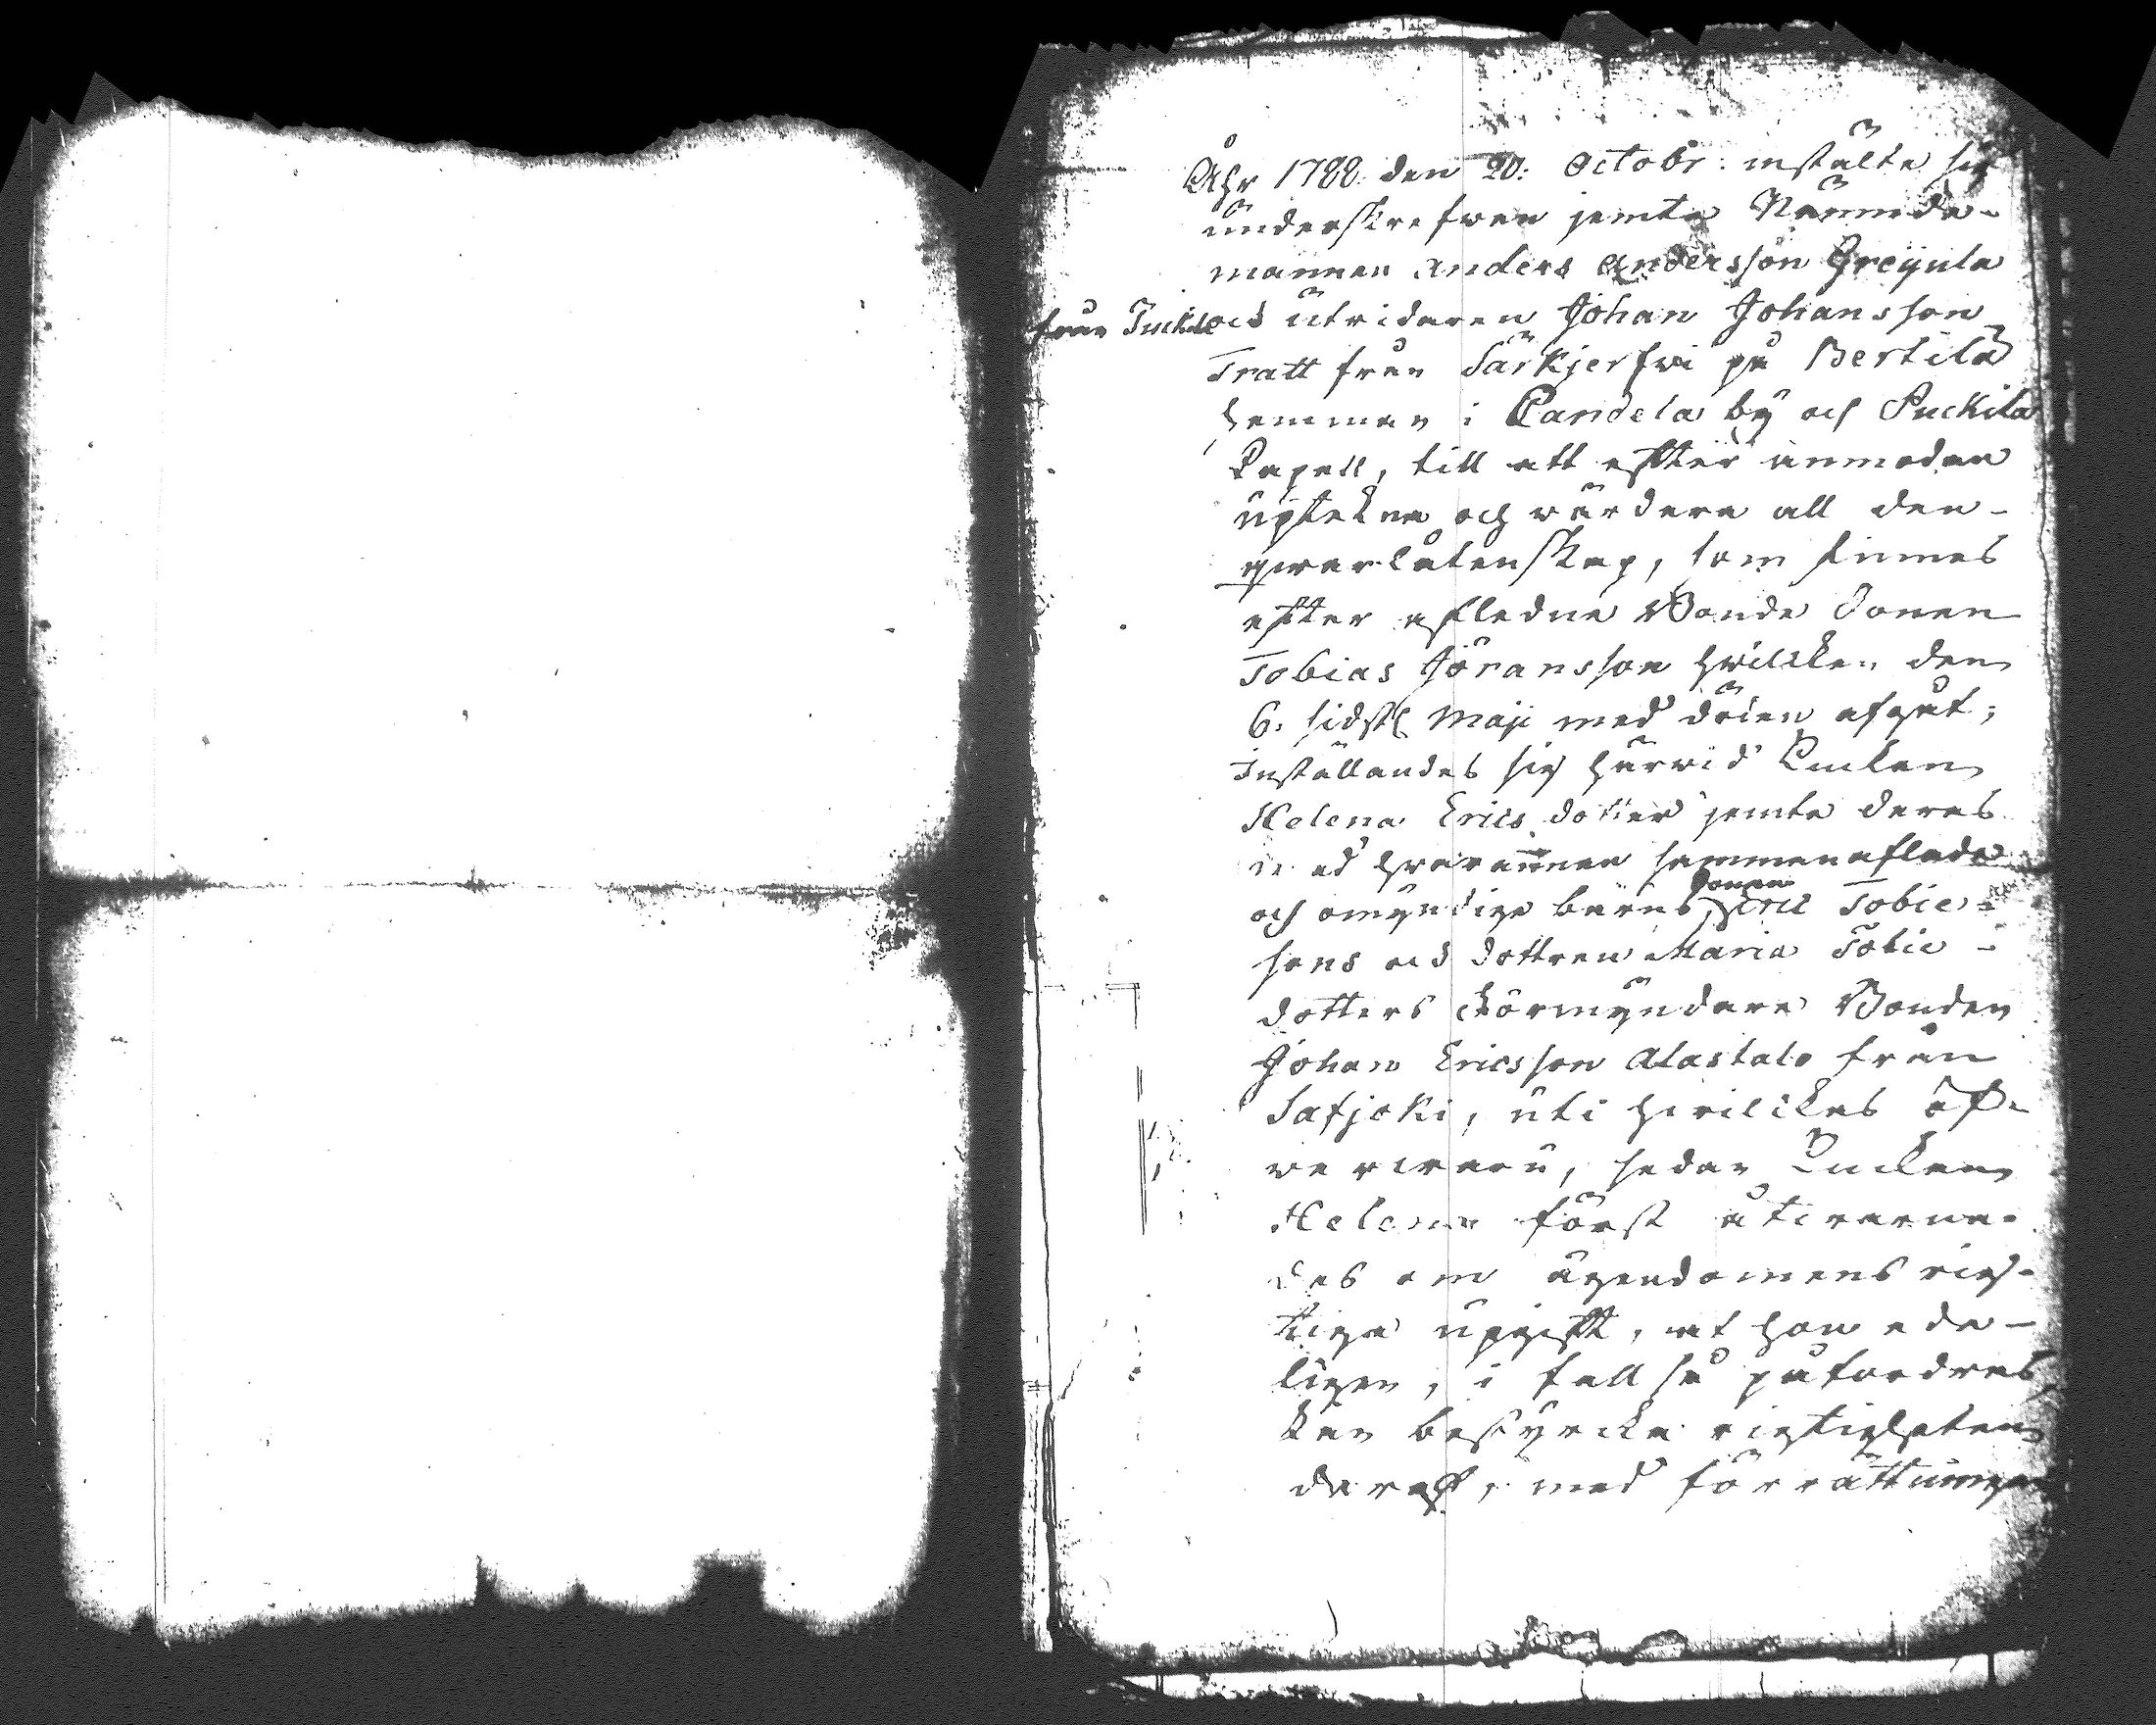 Åhr 1788. den 20: Octobr: instälte sig
underskrefwen jemte Nämnde-
mannen Anders Andersson Greijula
från Tuckila och utridaren Johan Johansson
Tratt från Särkjerfwi på Bertila
hemman i Randela by och Puckila
Capell, till att efter anmodan
uptekna och wärdera all den
qwarlåtenskap, som finnes
efter afledne Bonde Sonen
Tobias Jöransson hwilcken den
6: sidstl. Maji med döden afgåt;
Inställandes sig härwid Enckan
Helena Erics dotter jemte deras
med hwarannan sammanaflade
och omyndige barns, Sonen Eric Tobie-
sons och dottren Maria Tobie-
dotters Förmyndare Bonden
Johan Ericsson Alastalo från
Safjoki, uti hwilckas öf-
werwaru, sedan Enckan
Helena först åtwarna-
des om ägendomens rich-
tiga upgift, at hon ede-
ligen, i fall så påfordras,
kan bestyrcka richtigheten
deraf, med förrättningen